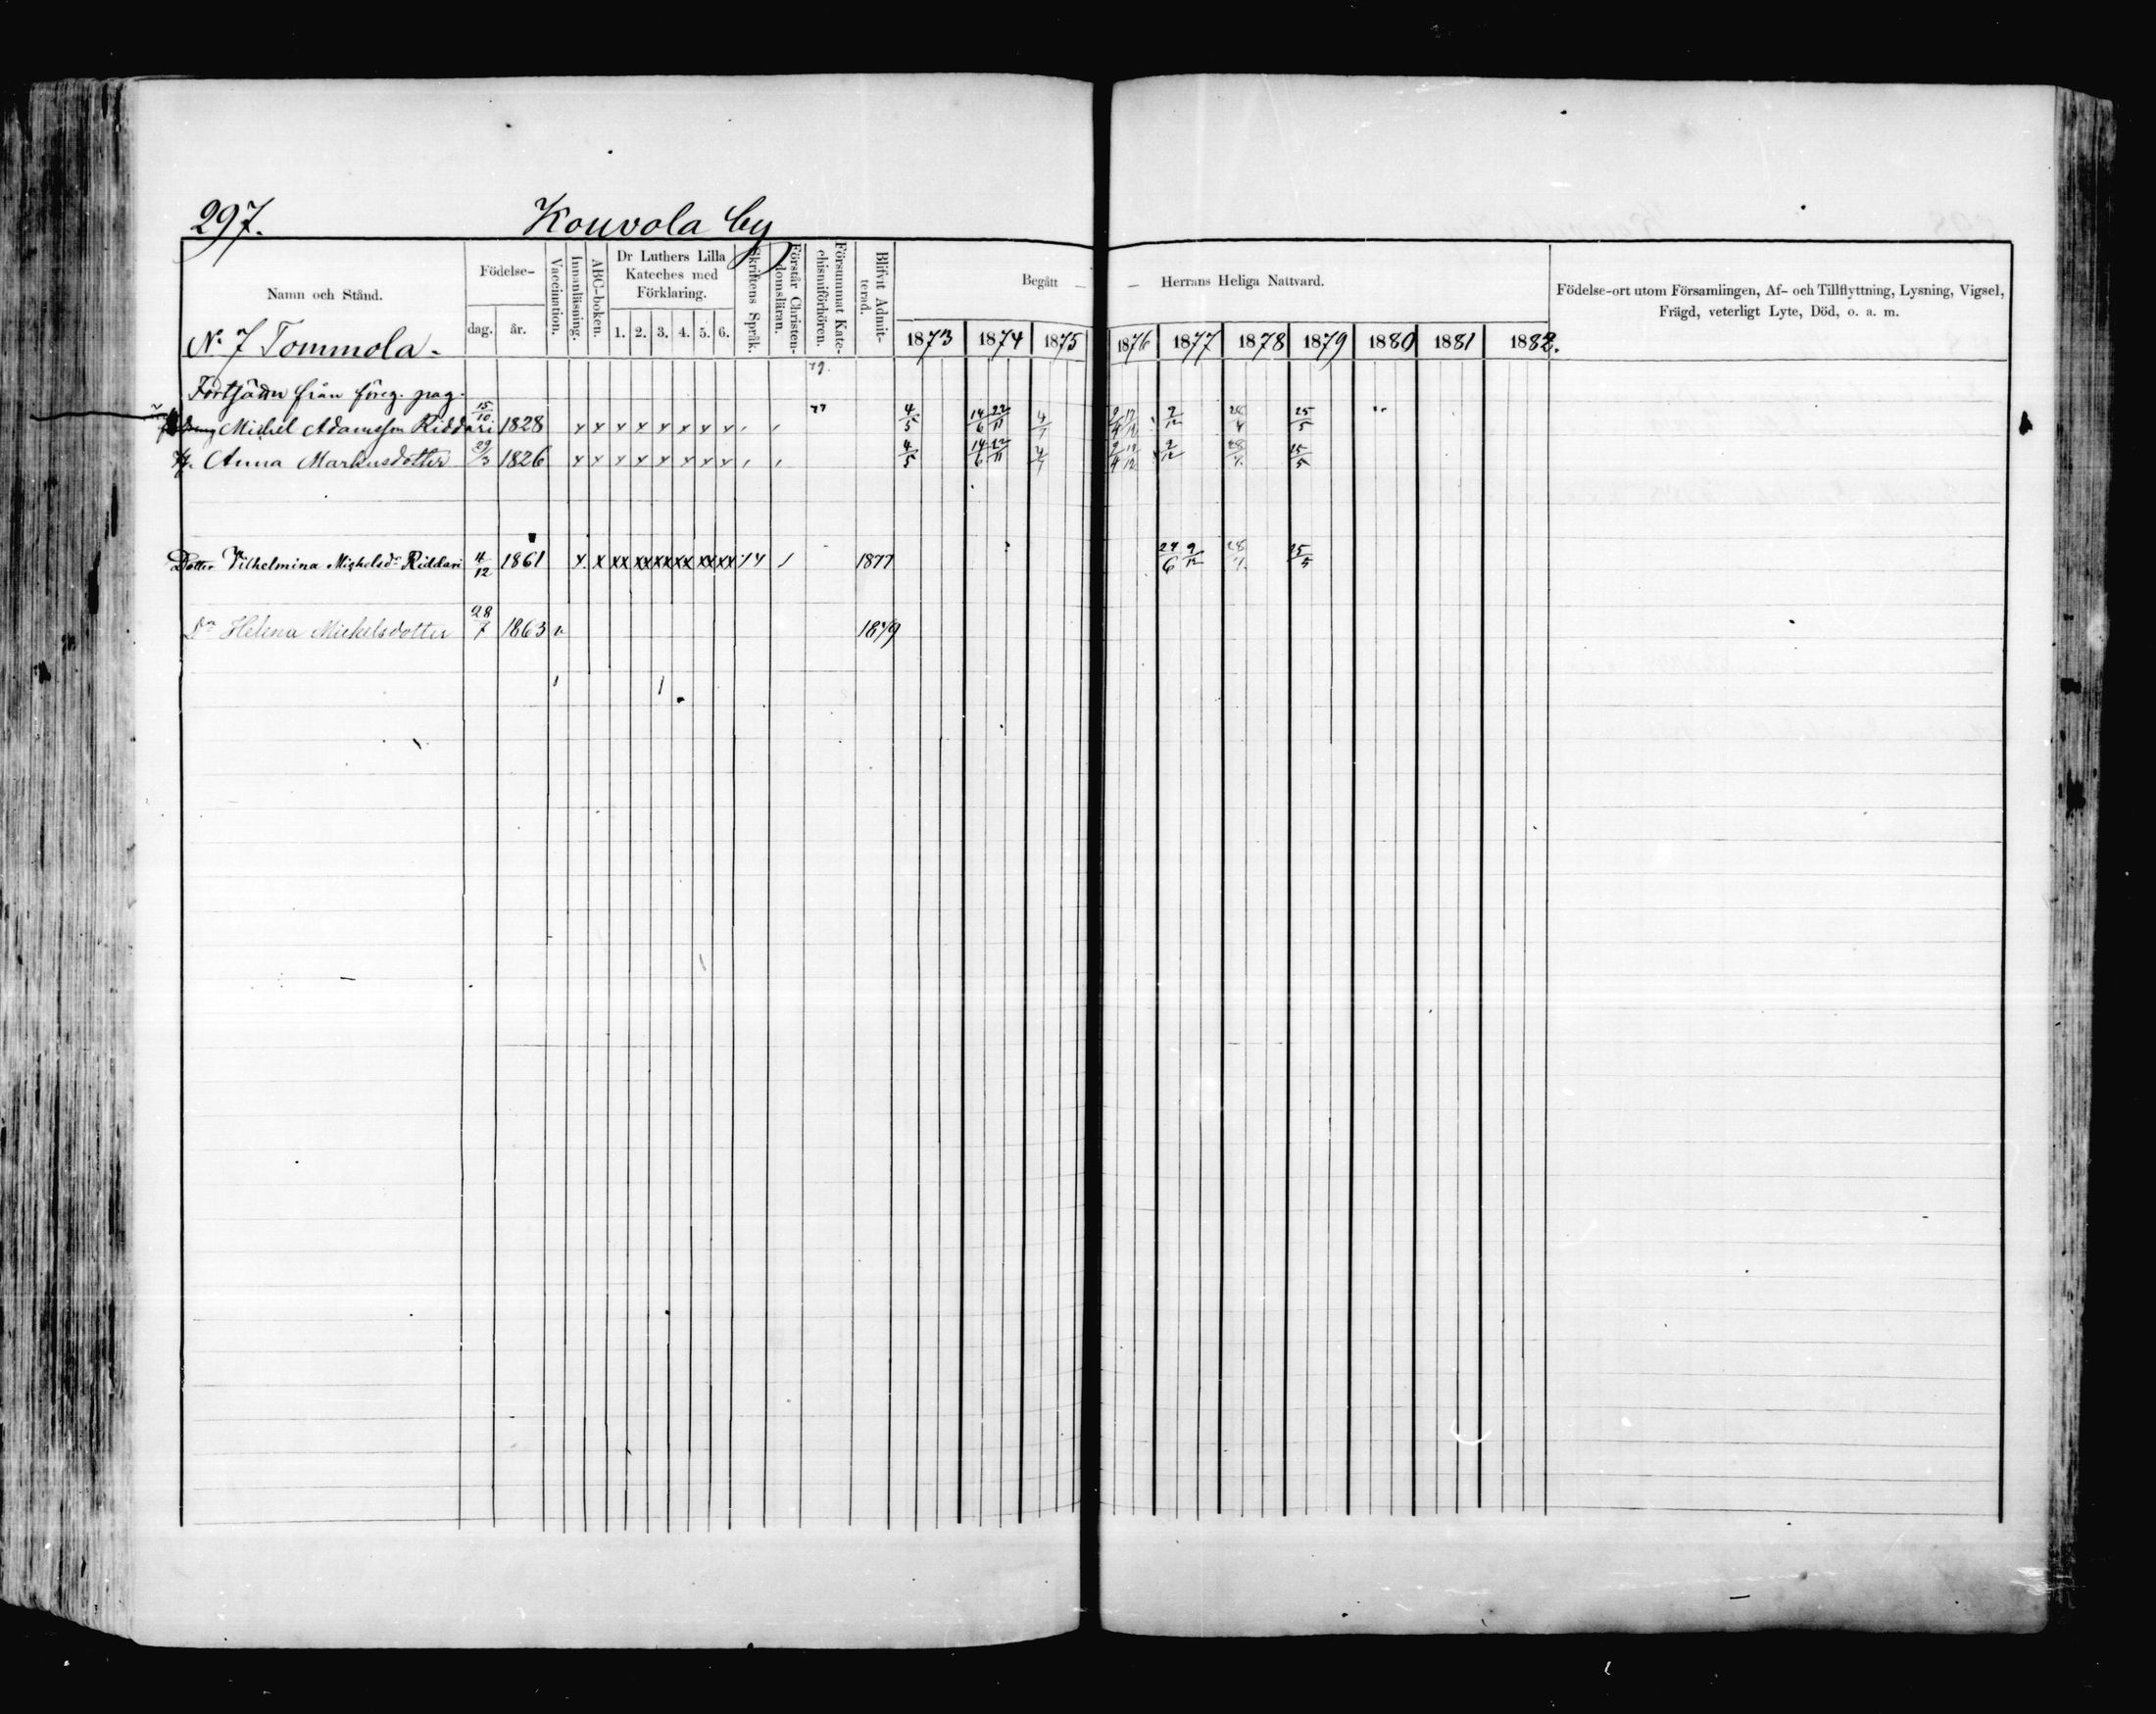 297. Kouvola by
Namn och Stånd.
Födelse-
dag. år.
Vaccination.
Innanläsning.
ABC-boken.
Dr Luthers Lilla
Kateches med
Förklaring.
1. 2. 3. 4. 5. 6.
Skriftens Språk.
Förstår Christen-
domsläran.
Försummat Kate-
chismiförhören.
Blifvit Admit-
terad.
Begått — — Herrans Heliga Nattvard.
1873 1874 1875 1876 1877 1878 1879 1880 1881 1882.
Födelse-ort utom Församlingen, Af- och Tillflyttning, Lysning, Vigsel,
Frägd, veterligt Lyte, Död, o. a. m.
No 7 Tommola.
från föreg. pag.
Michel Adamsson Riddari 15/10 1828 x x x x x x x x 4/5 14/6 22/11 4/7 2/4 12/12 2/12 28/4 25/5
H. Anna Markusdotter 29/3 1826 x x x x x x x x 4/5 14/6 22/11 4/7 2/4 12/12 2/12 28/4 25/5
Dotter Vilhelmina Michelsdr Riddari 4/12 1861 x x xx xx xx xx xx xx 1877 24/6 9/12 28/4 25/5
Dr Helena Michelsdotter 28/7 1863 v 1879